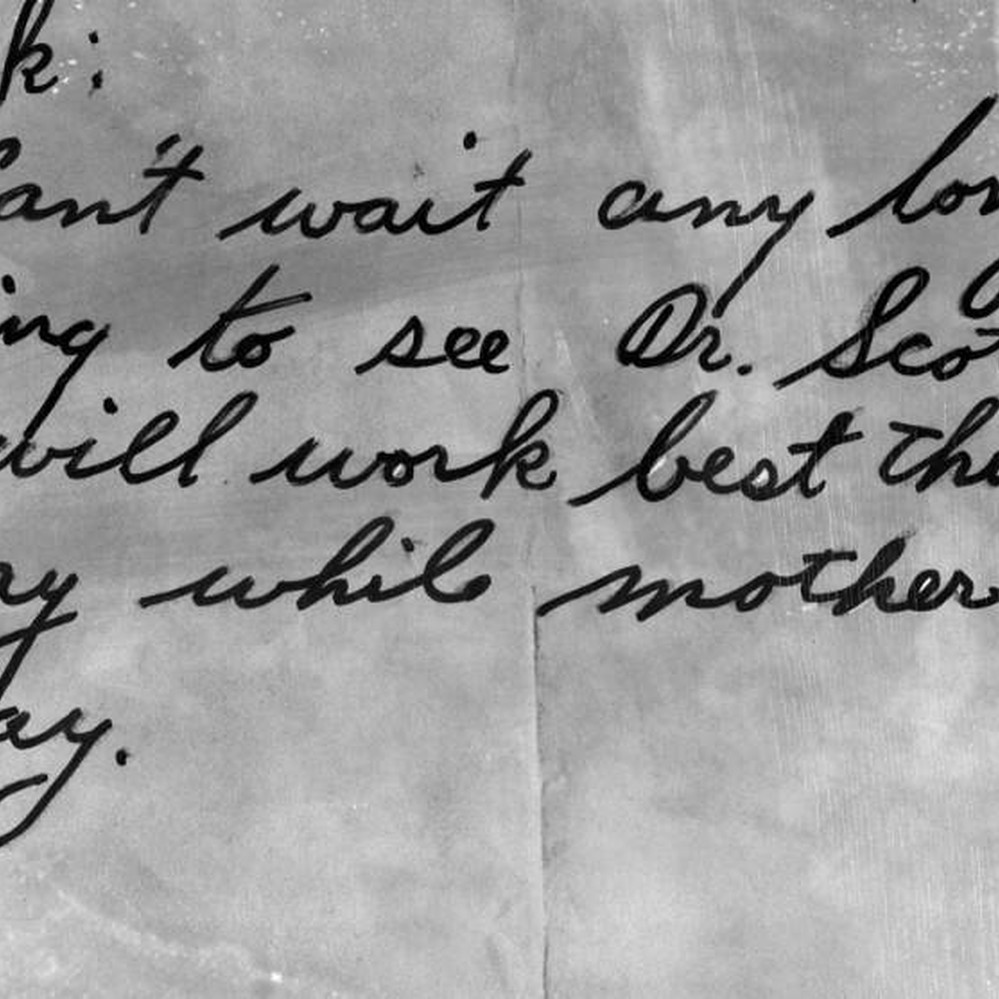 k:
ant wait any lon
ing to see Dr. Scot
will work best the
ry while mother
ay.